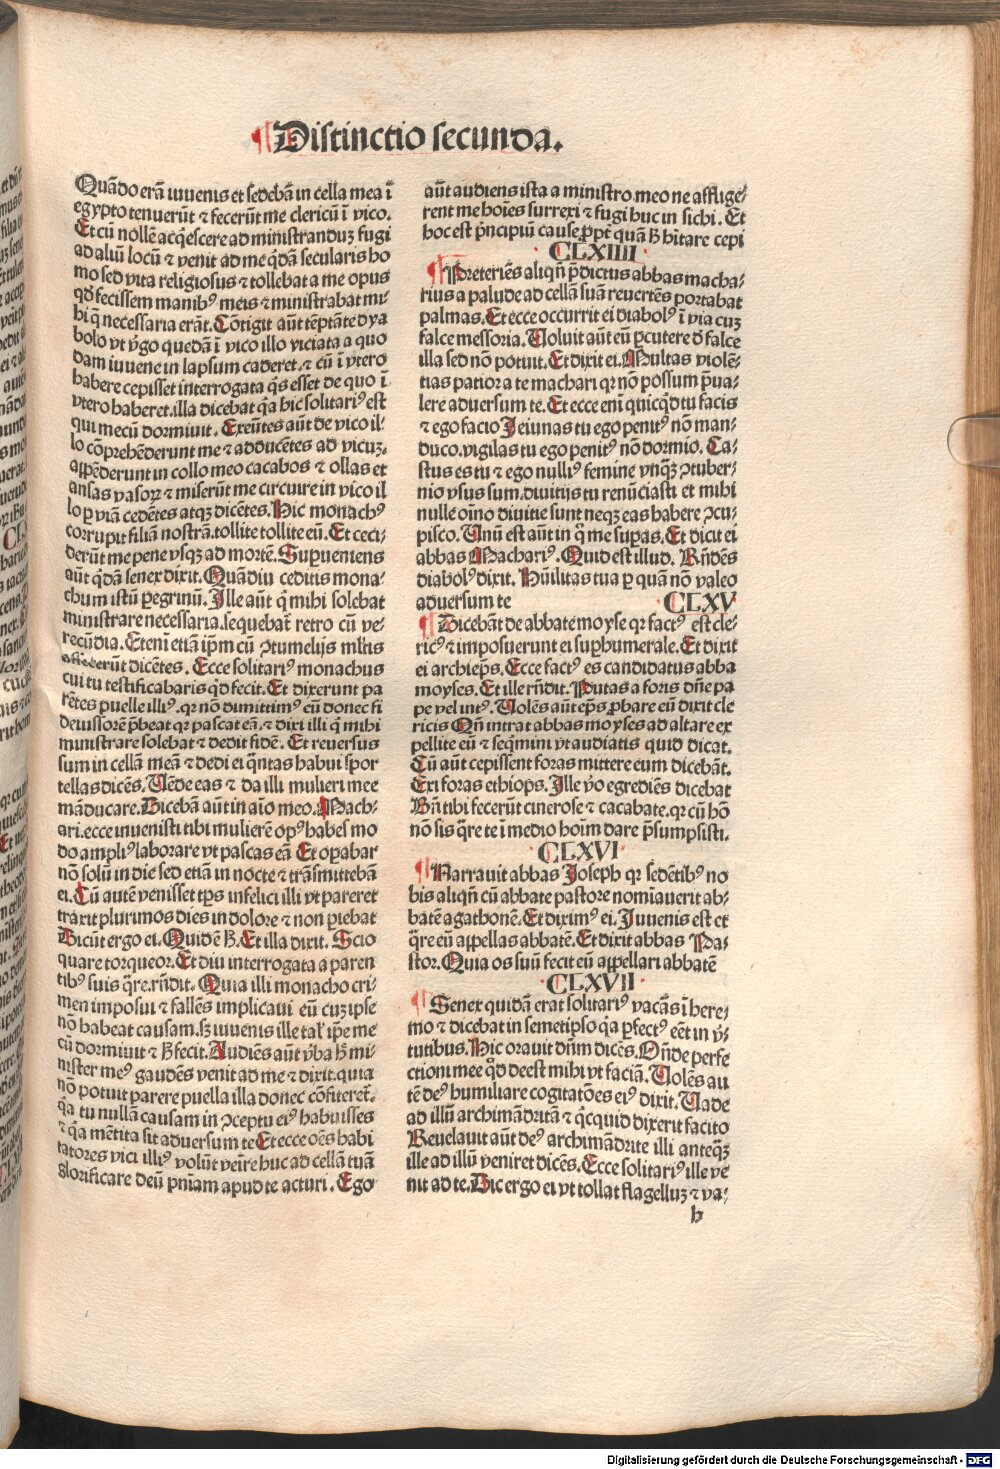 ¶ Distinctio secunda.
Quādo erā iuuenis et sedebā in cella mea ī
egypto tenuerūt ⁊ fecerūt me clericū ī vico.
Et cū nollē acq̄escere ad ministranduꝫ fugi
ad aliū locū ⁊ venit ad me q̄dā secularis ho
mo sed vita religiosus ⁊ tollebat a me opus
qd̄ fecissem manibꝰ meis ⁊ ministrabat mi-
bi q̄ necessaria erāt. Cōtigit aūt tēptāte dya
bolo vt v̄go quedā ī vico illo viciata a quo
dam iuuene in lapsum caderet. ⁊ cū ī vtero
habere cepisset interrogata q̄s esset de quo ī
vtero haberet. illa dicebat q̄a hic solitariꝰ est
qui mecū dormiuit. Exeūtes aūt de vico il-
lo cōprehēderunt me ⁊ adducētes ad vicuꝫ.
appēderunt in collo meo cacabos ⁊ ollas et
ansas vasoꝝ ⁊ miserūt me circuire in vico il
lo ꝑ viā cedētes atqꝫ dicētes. Hic monachꝰ
corrupit filiā nostrā. tollite tollite eū. Et ceci-
derūt me pene vsqꝫ ad mortē. Supueniens
aūt q̄dā senex dixit. Quādiu ceditis mona-
chum istū ꝑegrinū. Ille aūt q̄ mihi solebat
ministrare necessaria. sequebat̄ retro cū ve-
recūdia. Etenī etiā ip̄m cū ꝯtumelijs ml̄tis
afficerūt dicētes. Ecce solitariꝰ monachus
cui tu testificabaris qd̄ fecit. Et dixerunt pa
rētes puelle illiꝰ. qr nō dimittimꝰ eū donec fi
deiussorē p̄beat qr pascat eā. ⁊ dixi illi q̄ mihi
ministrare solebat ⁊ dedit fidē. Et reuersus
sum in cellā meā ⁊ dedi ei q̄ntas habui spor
tellas dicēs. Uēde eas ⁊ da illi mulieri mee
māducare. Dicebā aūt in aīo meo. Mach-
ari. ecce inuenisti tibi mulierē opꝰ habes mo
do ampliꝰ laborare vt pascas eā Et opabar
nō solū in die sed etiā in nocte ⁊ trāsmittebā
ei. Cū autē venisset tp̄s infelici illi vt pareret
traxit plurimos dies in dolore ⁊ non piebat
Dicūt ergo ei. Quid ē ħ. Et illa dixit. Scio
quare torqueor. Et diu interrogata a paren
tibꝰ suis q̄re. rn̄dit. Quia illi monacho cri-
men imposui ⁊ fallēs implicaui eū cuꝫ ipse
nō habeat causam. sꝫ iuuenis ille tal' ip̄e me
cū dormiuit ⁊ ħ fecit. Audiēs aūt v̄ba ħ mi-
nister meꝰ gaudēs venit ad me ⁊ dixit. quia
nō potuit parere puella illa donec cōfiteret̄.
q̄a tu nullā causam in ꝯceptu eiꝰ habuisses
⁊ q̄a mētita sit aduersum te Et ecce oēs habi
tatores vici illiꝰ volūt veīre huc ad cellā tuā
glorificare deū pn̄iam apud te acturi. Ego
aūt audiens ista a ministro meo ne afflige-
rent me hoīes surrexi ⁊ fugi huc in sichi. Et
hoc est p̄ncipiū cause ꝓpt̄ quā ħ hītare cepi
CLXIIII
¶ Preteriēs aliqn̄ p̄dictus abbas macha-
rius a palude ad cellā suā reuertēs portabat
palmas. Et ecce occurrit ei diabolꝰ ī via cuꝫ
falce messoria. Uoluit aūt eū ꝑcutere d̄ falce
illa sed nō potuit. Et dixit ei. Multas violē-
tias patior a te machari qr nō possum p̄ua-
lere aduersum te. Et ecce enī quicq̄d tu facis
⁊ ego facio Ieiunas tu ego penitꝰ nō man-
duco. vigilas tu ego penitꝰ nō dormio. Ca-
stus es tu ⁊ ego nulliꝰ femine vnqꝫ ꝯtuber-
nio vsus sum. diuitijs tu renūciasti et mihi
nulle oīno diuitie sunt neqꝫ eas habere ꝯcu-
pisco. Unū est aūt in q̄ me supas. Et dicit ei
abbas Machariꝰ. Quid est illud. Rn̄dēs
diabolꝰ dixit. Hūilitas tua ꝑ quā nō valeo
aduersum te CLXV
¶ Dicebāt de abbate moyse qr factꝰ est cle-
ricꝰ ⁊ imposuerunt ei sup̄humerale. Et dixit
ei archiep̄s. Ecce factꝰ es candidatus abba
moyses. Et ille rn̄dit. Putas a foris dn̄e pa
pe vel intꝰ. Uolēs aūt ep̄s ꝓbare eū dixit cle
ricis Qn̄ intrat abbas moyses ad altare ex
pellite eū ⁊ seq̄mini vt audiatis quid dicat.
Cū aūt cepissent foras mittere eum dicebāt.
Exi foras ethiops. Ille v̄o egrediēs dicebat
Bn̄ tibi fecerūt cinerose ⁊ cacabate. qr cū hō
nō sis q̄re te ī medio hoīm dare p̄sumpsisti.
CLXVI
¶ Narrauit abbas Joseph qr sedētibꝰ no
bis aliqn̄ cū abbate pastore nomīauerit ab-
batē agathonē. Et diximꝰ ei. Iuuenis est et
q̄re eū appellas abbatē. Et dixit abbas Pa-
stor. Quia os suū fecit eū appellari abbatē
CLXVII
¶ Senex quidā erat solitariꝰ vacās ī here-
mo ⁊ dicebat in semetipso q̄a ꝑfectꝰ eēt in v̄-
tutibus. Hic orauit dn̄m dicēs. Ōnde perfe
ctioni mee qd̄ deest mihi vt faciā. Uolēs au
tē deꝰ humiliare cogitatōes eiꝰ dixit. Uade
ad illū archimādritā ⁊ q̄cquid dixerit facito
Reuelauit aūt deꝰ archimādrite illi anteqꝫ
ille ad illū veniret dicēs. Ecce solitariꝰ ille ve
nit ad te. Dic ergo ei vt tollat flagelluꝫ ⁊ va-
h
Digitalisierung gefördert durch die Deutsche Forschungsgemeinschaft - DFG